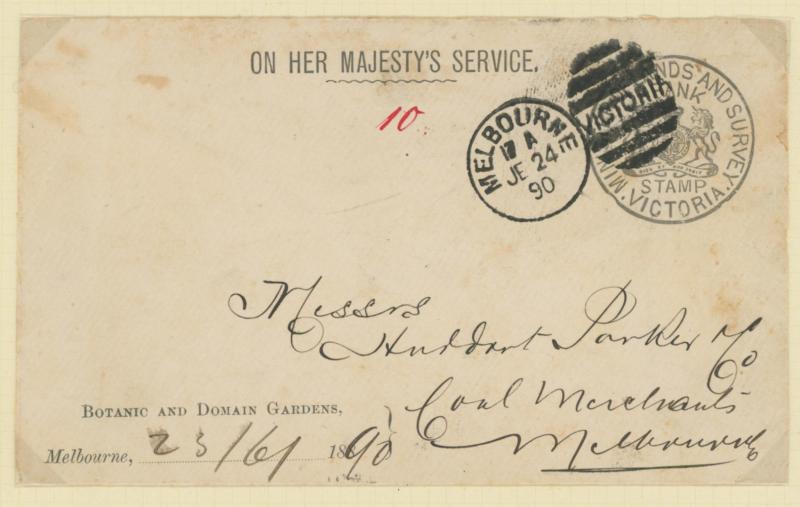 ON HER MAJESTY'S SERVICE.
10.
MELBOURNE
17 A
JE 24
90
VICTORIA
NDS AND SURVEY.
NK
STAMP
MIN
VICTORIA.
Messrs
Huddart Parker & Co
Coal Merchants
Melbourne
BOTANIC AND DOMAIN GARDENS,
Melbourne, 23/6/ 1890